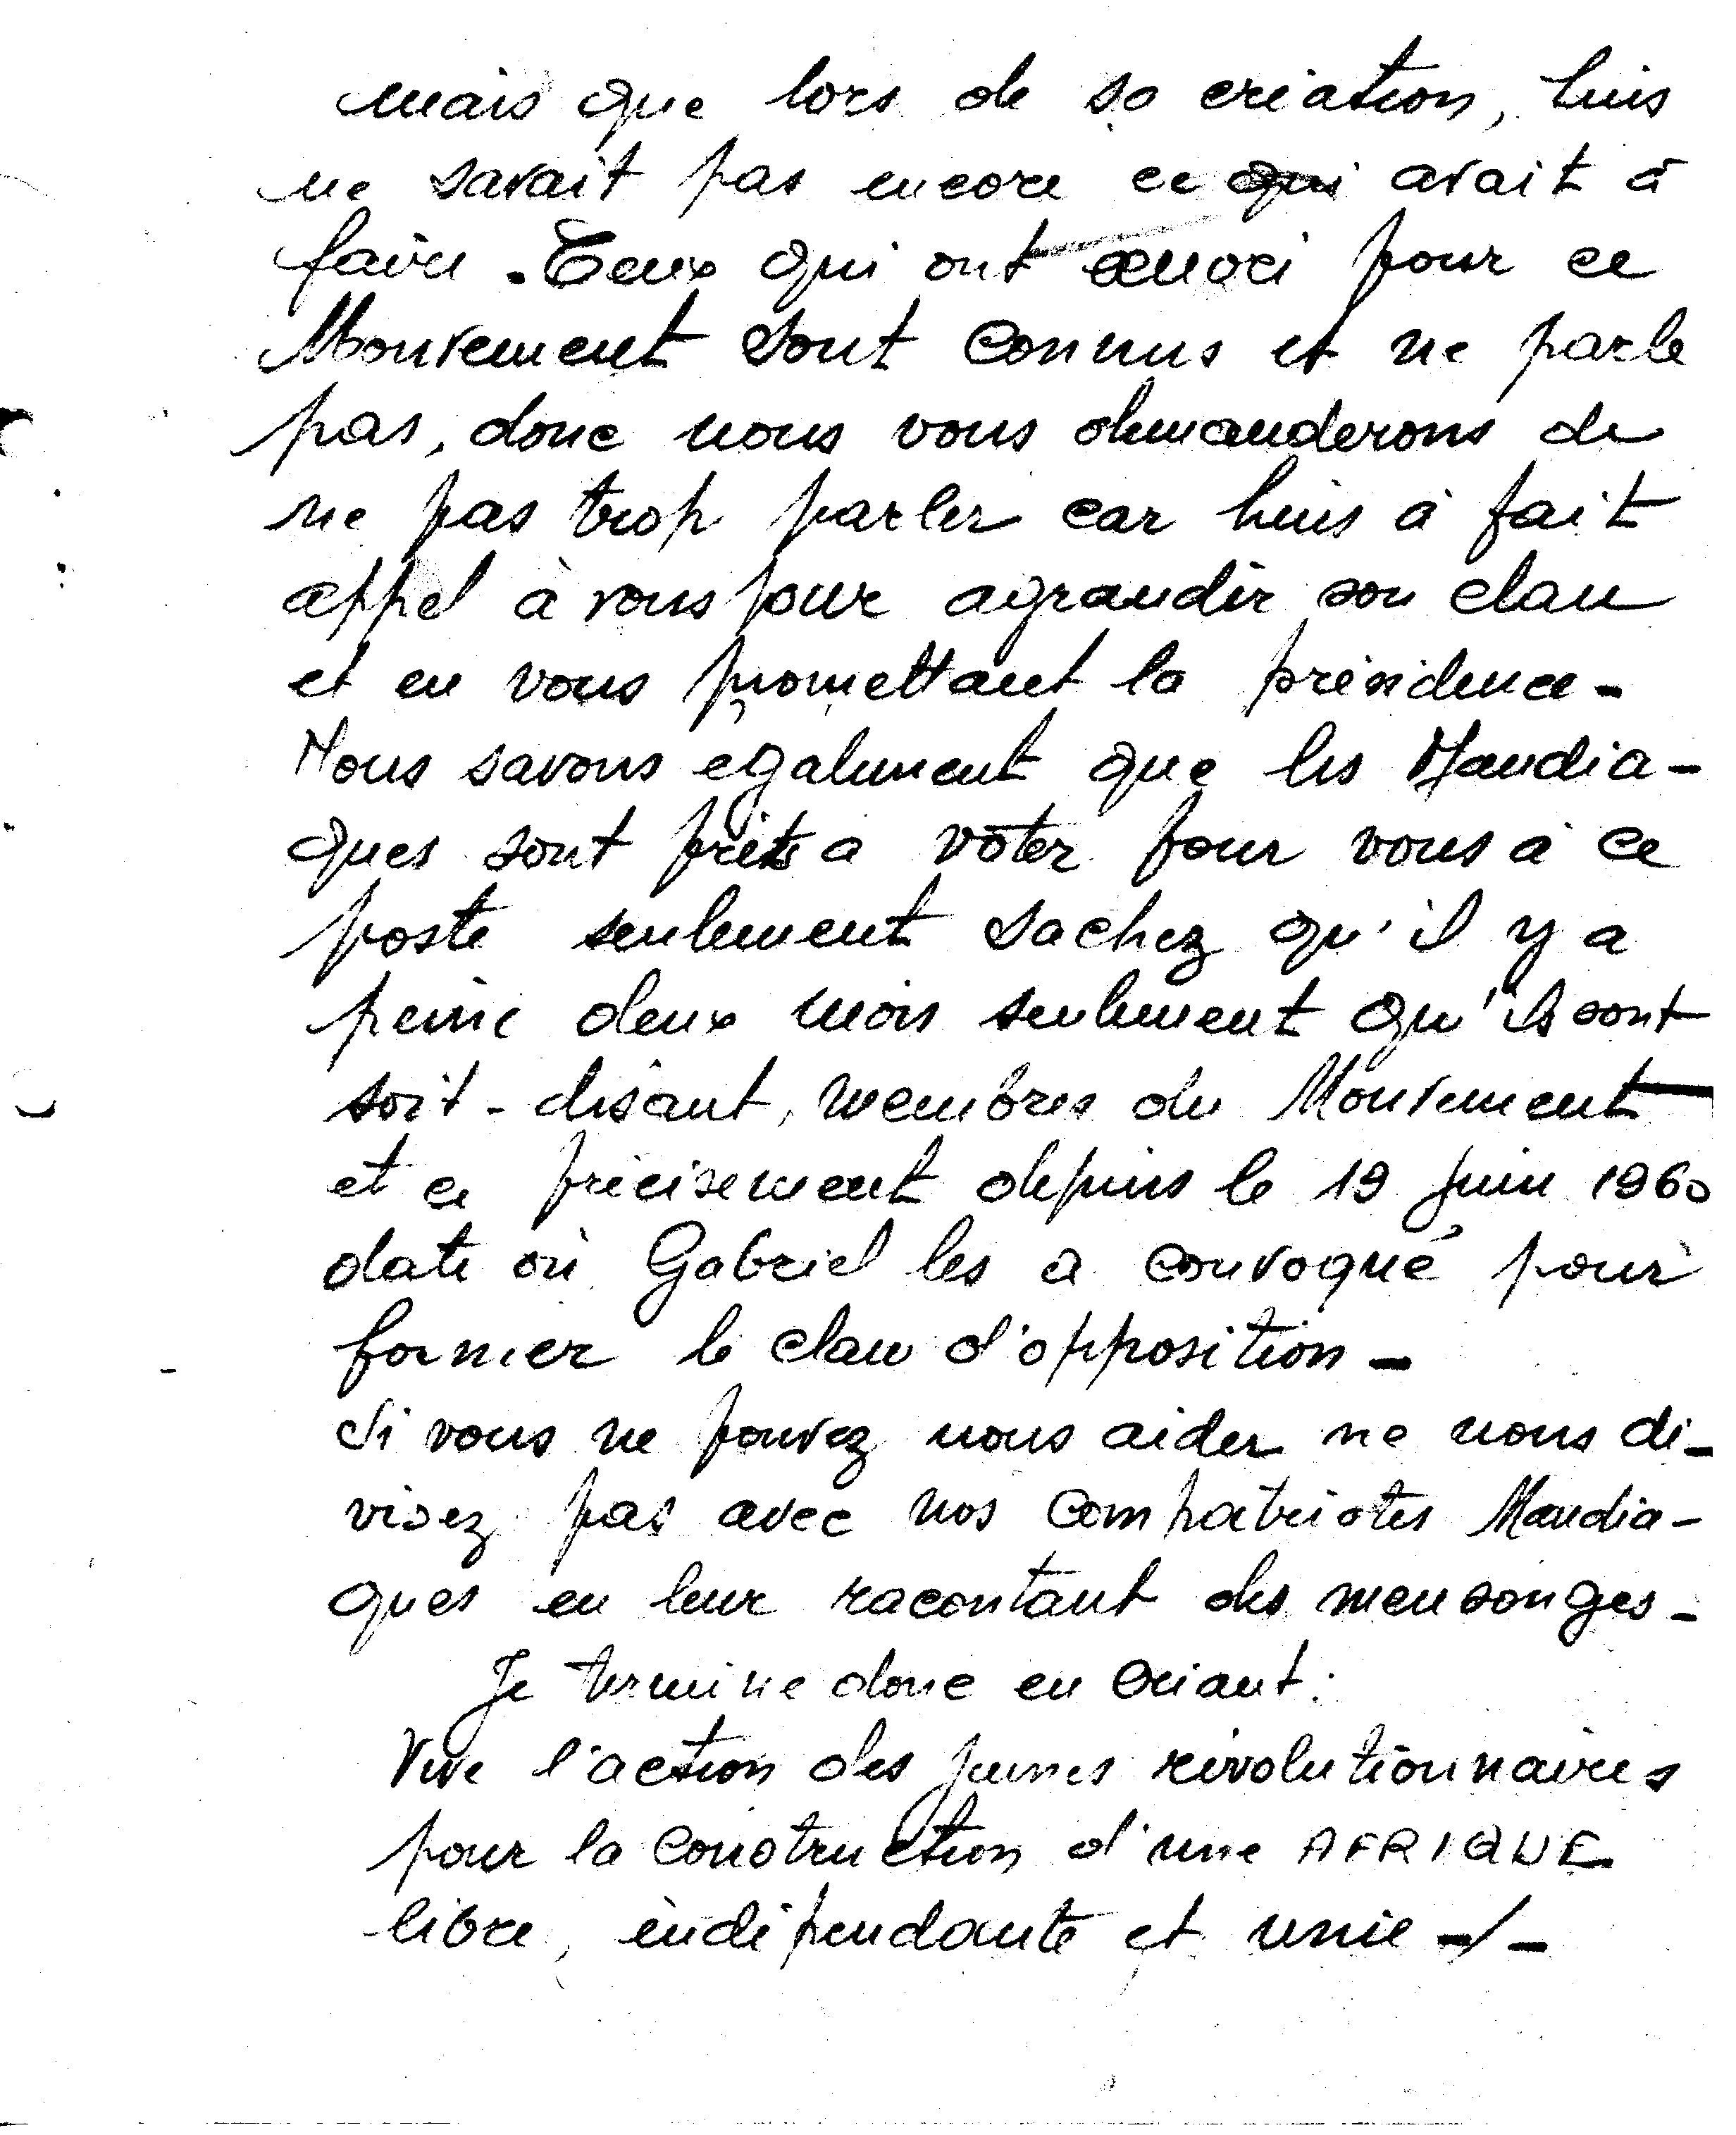 mais que lors de sa création, Luis
ne savait pas encore ce qui avait à
faire. Ceux qui ont œuvré pour ce
Mouvement sont connus et ne parle
pas, donc nous vous demanderons de
ne pas trop parler car Luis à fait
appel à vous pour agrandir son clan
et en vous promettant la présidence -
Nous savons egalement que les Mandia-
ques sont prêts a voter pour vous à ce
poste seulement sachez qu'il y a
peine deux mois seulement qu'ils sont
soit-disant, membres du Mouvement
et ce précisement depuis le 19 juin 1960
date où Gabriel les a convoqué pour
former le clan d'opposition -
Si vous ne pouvez nous aider ne nous di-
visez pas avec nos compatriotes Mandia-
ques en leur racontant des mensonges -
Je termine donc en criant :
Vive l'action des jeunes révolutionnaires
pour la construction d'une AFRIQUE
libre, indépendante et unie -/-